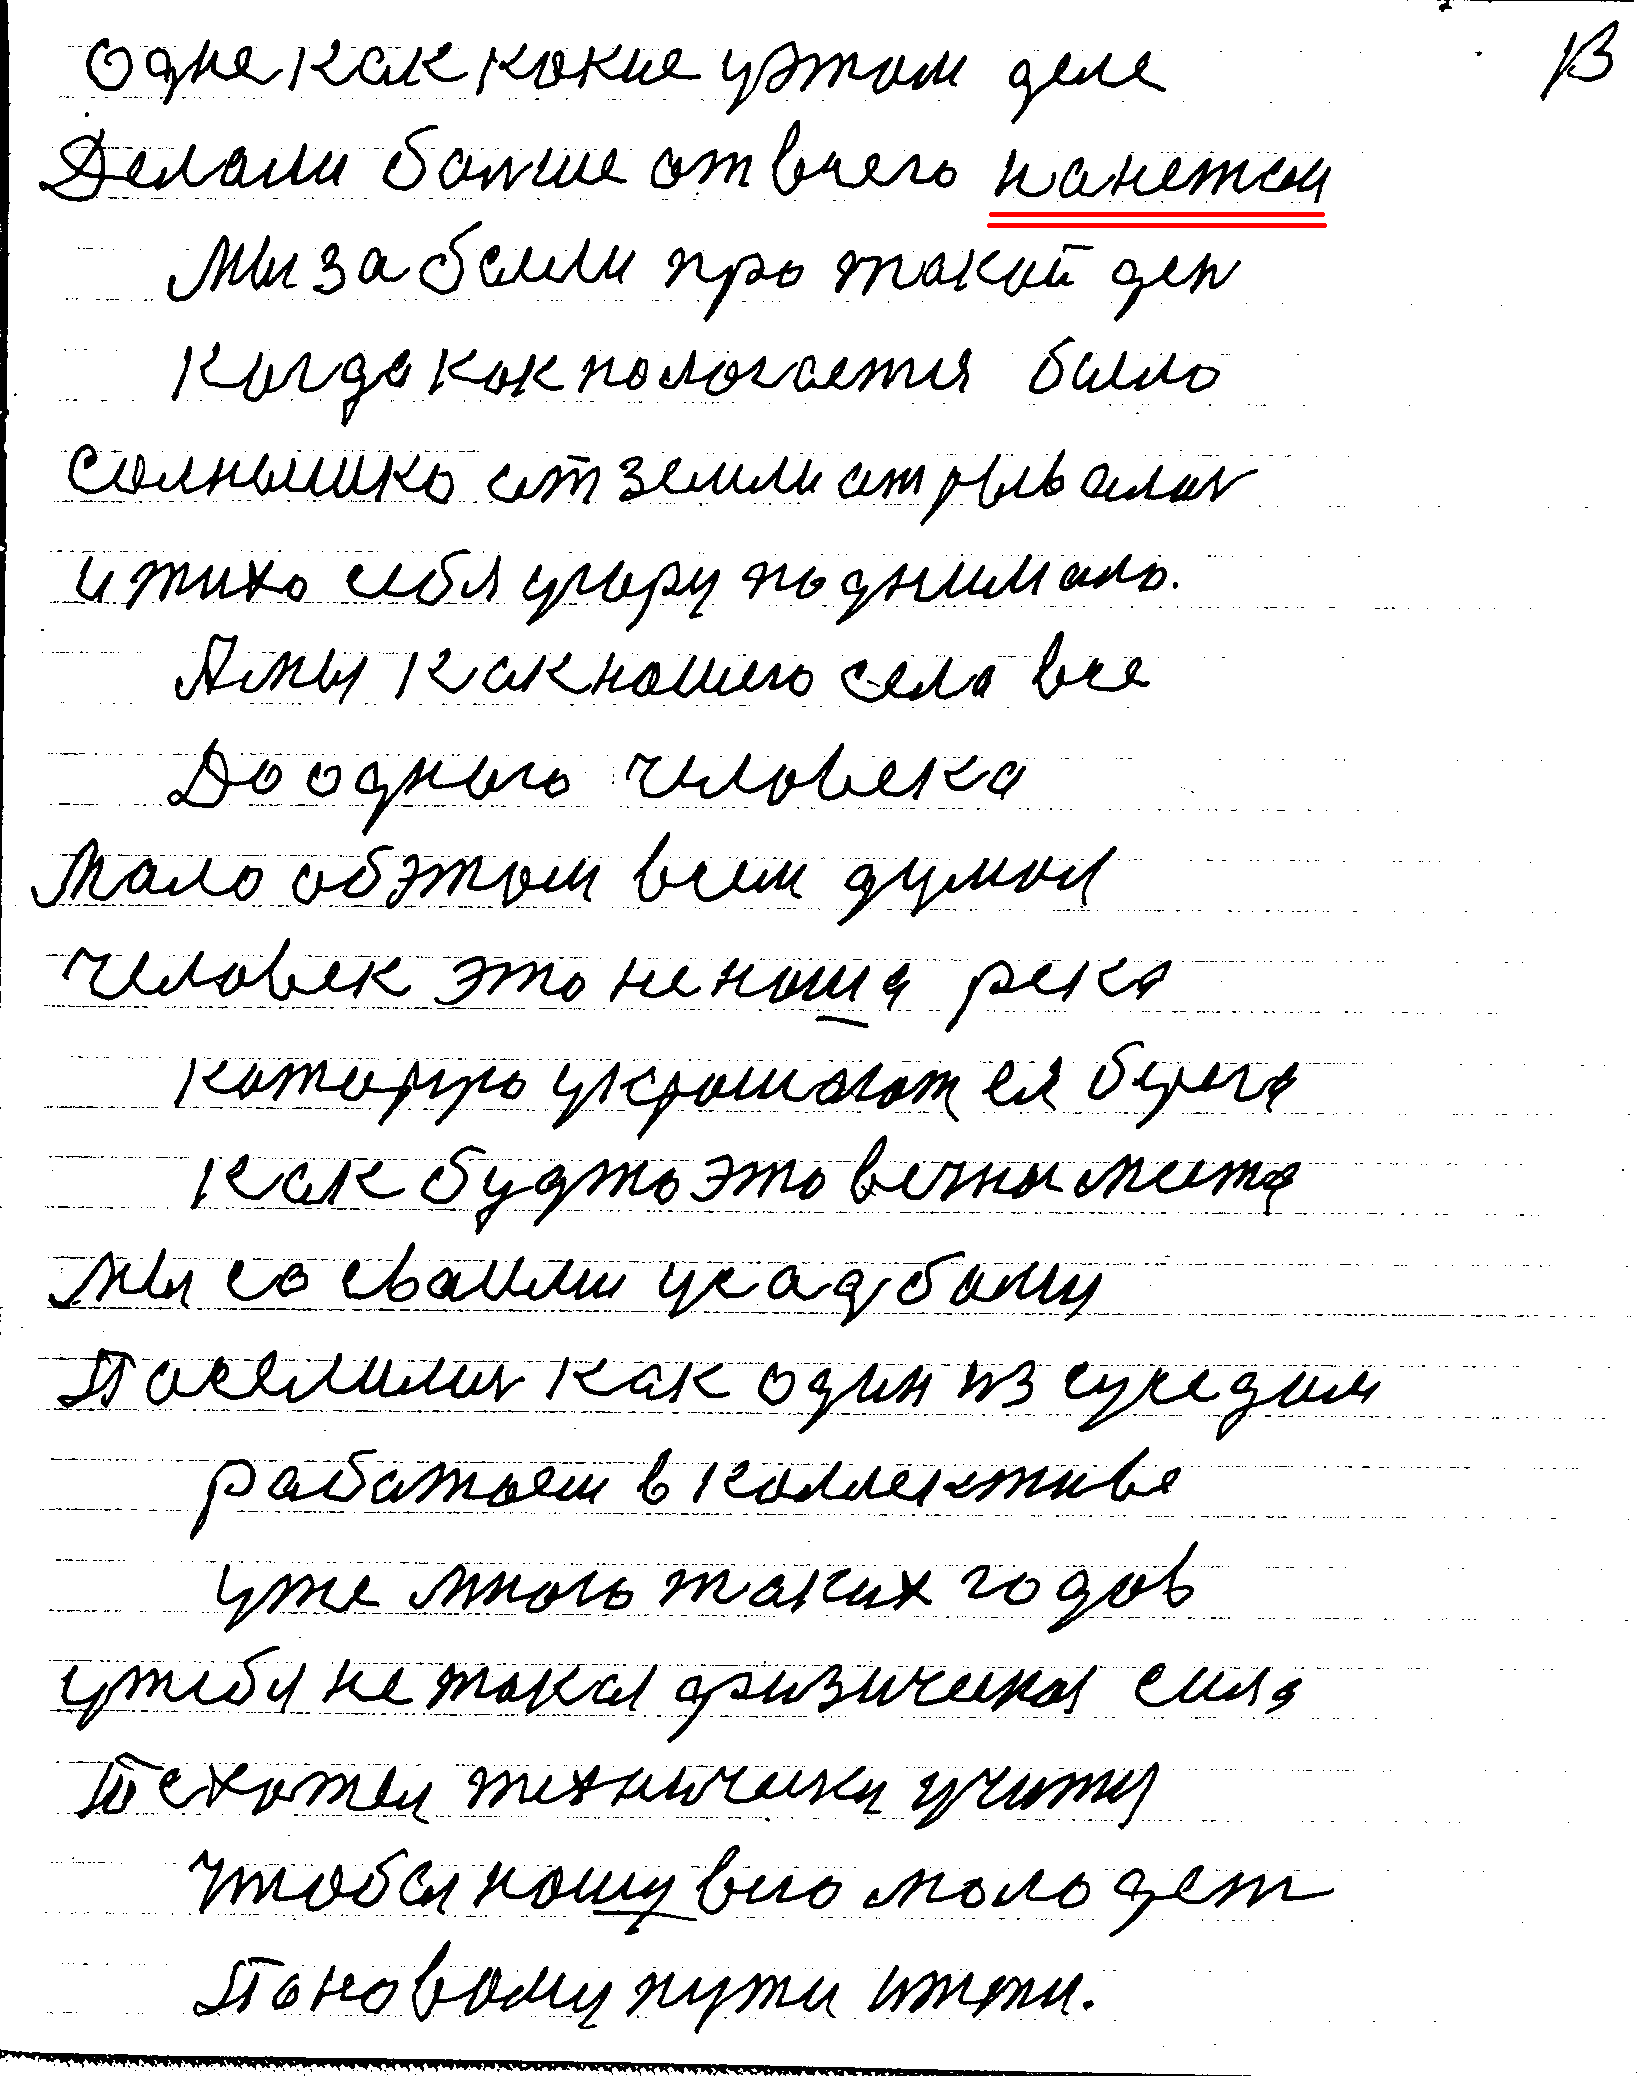 13
одне как какие у этом деле
Делали болше от всего
Мы забыли про такой ден
Когда как пологается было
солнышко от земли отрывалос
и тихо себя угору поднимало.
А мы как нашего села все
До одного человека
Мало об этом всем думая
человек это не наша река
которую украшают ея берега
как будто это вечны места
мы со своими усадбами
Поселилис как один из суседом
работаем в коллективе
уже много таких годов
у тебя не такая физическая сила
Ты хотел технически учится
Чтобы нашу всю молодеж
По новому пути итти.